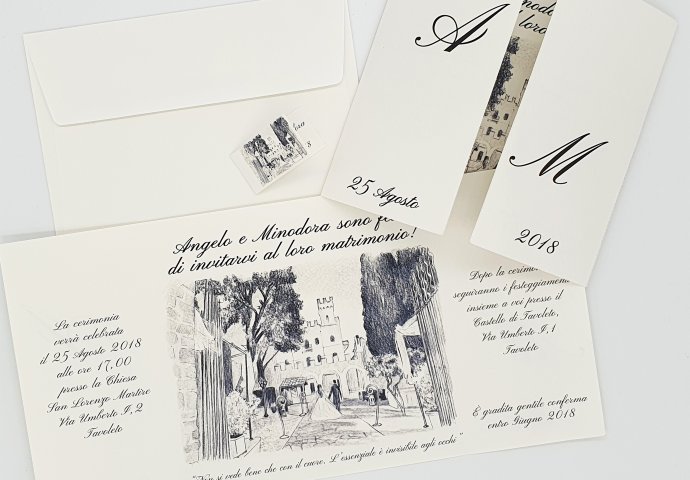 A
25 Agosto
M
2018
Angelo e Minodora sono
di invitarvi al loro matrimonio!
La cerimonia
verrà celebrata
il 25 Agosto 2018
alle ore 17,00
presso la Chiesa
San Lorenzo Martire
Via Umberto I,2
Tavoleto
Dopo la
seguiranno i festeggiamenti
insieme a voi presso il
Castello di Tavoleto,
Via Umberto I,1
Tavoleto
È gradita gentile conferma
entro Giugno 2018
"Non si vede bene che col cuore. L'essenziale è invisibile agli occhi"